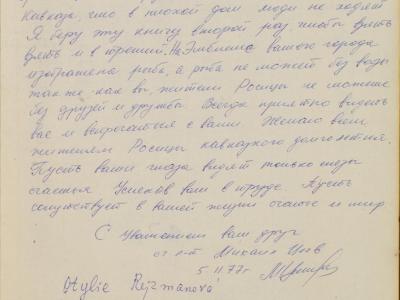 Кавказе, что в плохой дом люди не ходят
Я беру эту книгу второй раз, чтобы
и в третий. На эмблеме вашего города
изображена рыба, а рыба не может без воды
так же как вы, жители Росицы не можете
без друзей и дружбы. Всегда приятно видеть
вас и встречаться с вами. Желаю вам
жителям Росицы кавказского долголетия.
Пусть ваши глаза видят только
счастья Успехов вам в труде. Пусть
сопутствует в вашей жизни счастье и мир
С уважением ваш друг
Михаил
5.11.77г.
Otylie Rejzmanová